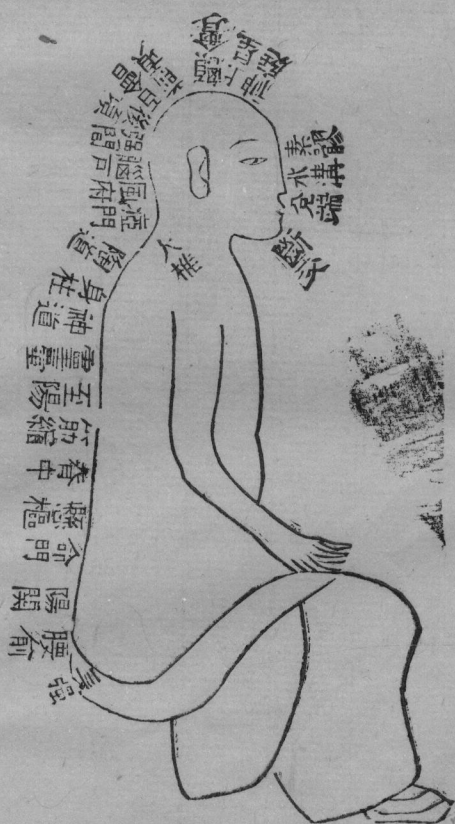 齗交
兌端
水溝
素髎
神庭
上星
顖會
前頂
百會
後頂
强間
腦戶
風府
瘂門
大椎
陶道
身柱
神道
靈臺
至陽
筋縮
脊中
懸樞
命門
陽關
腰俞
長强